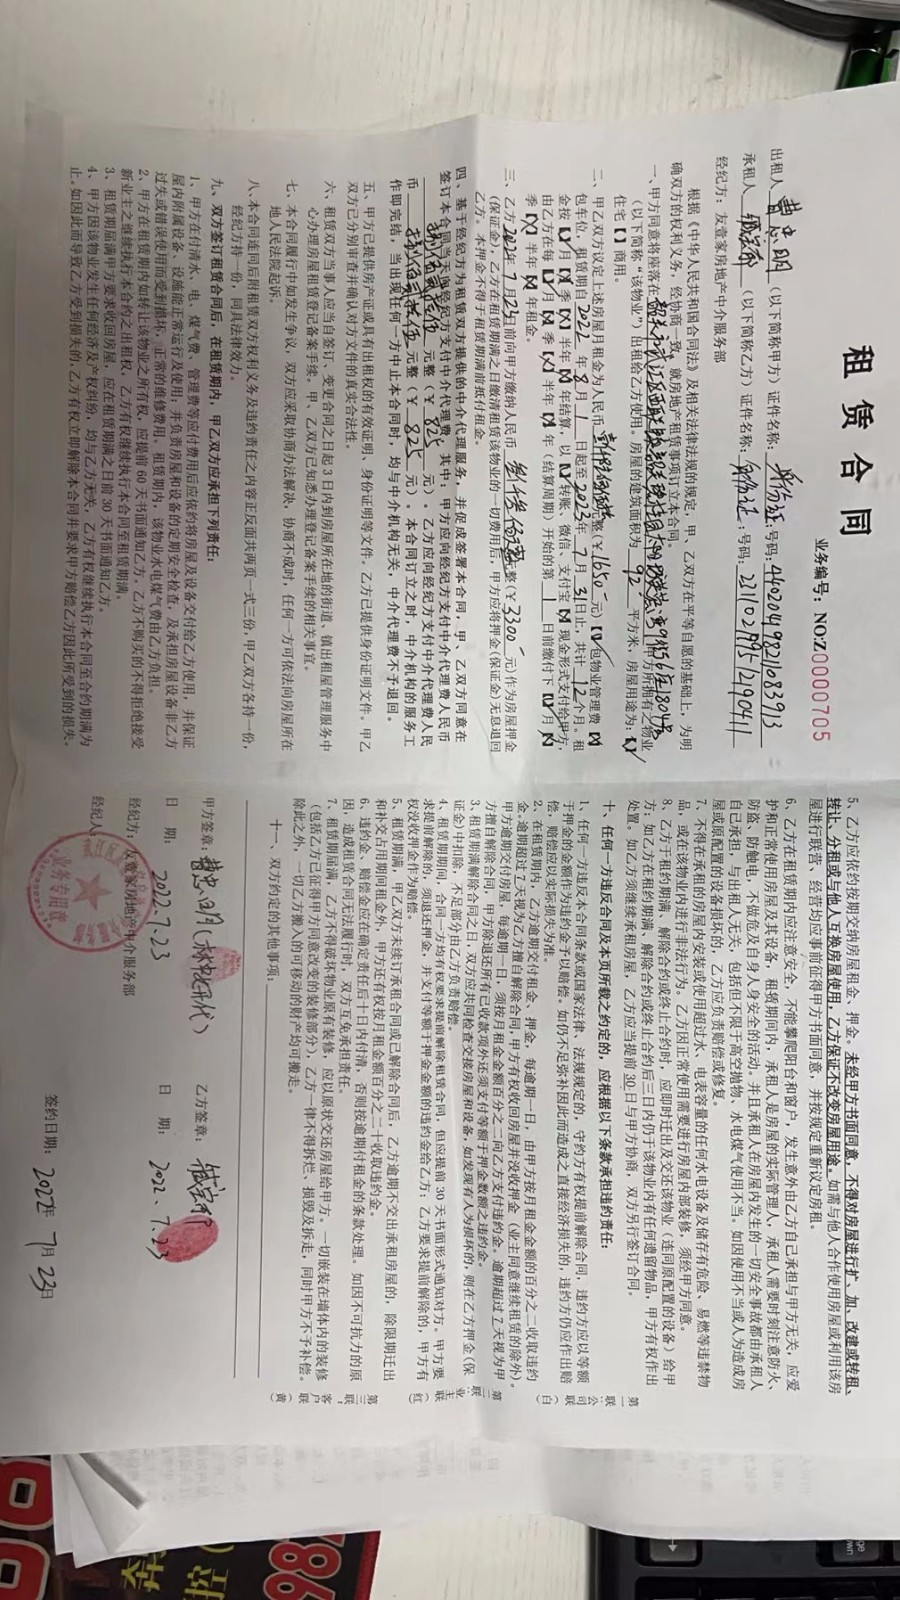 租 赁 合 同
业务编号：NO:Z00000705
出租人 曹忠明 （以下简称甲方）证件名称：身份证：号码：
承租人 （以下简称乙方）证件名称：身份证：号码：
经纪方：友壹家房地产中介服务部
根据《中华人民共和国合同法》及相关法律法规的规定，甲、乙双方在平等自愿的基础上，为明
确双方的权利义务，经协商一致，就房地产租赁事项订立本合同。
一、甲方同意将座落在
（以下简称“该物业”）出租给乙方使用。房屋的建筑面积为 92 平方米，房屋用途为：【√】
住宅【 】商用。
二、甲乙双方议定上述房屋月租金为人民币 整（￥1650元）【√】包物业管理费【 】
包年车位，租赁期自2022年8月1日起至2023年7月31日止，共计12个月。租
金按【√】月【X】季【X】半年【X】年结算，以【X】转账、微信、支付宝【X】现金形式支付给甲方，
由乙方在每【√】月【X】季【X】半年【X】年（结算周期）开始的第 1 日前缴付下【√】月【X】
季【X】半年【X】年租金。
三、乙方2022年7月23日前向甲方缴纳人民币 叁仟叁佰 整（￥3300元）作为房屋押金
（保证金），乙方在租赁期满之日缴清租赁该物业的一切费用后，甲方应将押金（保证金）无息退回
乙方。本押金不得于租赁期满前抵付租金。
四、基于经纪方为租赁双方提供的中介代理服务，并促成签署本合同，甲、乙双方同意在
签订本合同当天向经纪方支付中介代理费，其中：甲方应向经纪方支付中介代理费人民币
捌佰贰拾伍 元整（￥825元）。乙方应向经纪方支付中介代理费人民
币 捌佰贰拾伍 元整（￥825元）。本合同订立之时，中介机构的服务工
作即完结，当出现任何一方中止本合同时，均与中介机构无关，中介代理费不予退回。
五、甲方已提供房产证或具有出租权的有效证明、身份证明等文件。乙方已提供身份证明文件。甲乙
双方已分别审查并确认对方文件的真实合法性。
六、租赁双方当事人应当自签订、变更合同之日起3日内到房屋所在地的街道、镇出租屋管理服务中
心办理房屋租赁登记备案手续。甲、乙双方已知悉办理登记备案手续的相关事宜。
七、本合同履行中如发生争议，双方应采取协商办法解决，协商不成时，任何一方可依法向房屋所在
地人民法院起诉。
八、本合同连同后附租赁双方权利义务及违约责任之内容正反面共两页一式三份，甲乙双方各持一份，
经纪方持一份，同具法律效力。
九、双方签订租赁合同后，在租赁期内，甲乙双方应承担下列责任：
1、甲方在付清水、电、煤气费、管理费等应付费用后应依约将房屋及设备交付给乙方使用，并保证
屋内附属设备、设施能正常运行及使用，并负责房屋和设备的定期安全检查，及承担房屋设备非乙方
过失或错误使用而受到损坏，正常的维修费用。租赁期内，该物业水电煤气费由乙方负担。
2、甲方在租赁期内如转让该物业之所有权，应提前60天书面通知乙方，乙方不购买的不得拒绝接受
新业主之继续执行本合约之出租权，乙方有权继续执行本合同至租赁期满；
3、租赁期届满甲方要求收回房屋，应在租赁期满之日前30天书面通知乙方。
4、甲方因该物业发生任何经济及产权纠纷，均与乙方无关，乙方有权继续执行本合同至合约期满为
止。如因此而导致乙方受到损失的，乙方有权立即解除本合同并要求甲方赔偿乙方因此所受到的损失。
5、乙方应依约按期交纳房屋租金、押金。未经甲方书面同意，不得对房屋进行扩、加、改建或转租、
转让、分租或与他人互换房屋使用，乙方保证不改变房屋用途。如需与他人合作使用房屋或利用该房
屋进行联营、经营均应事前征得甲方书面同意，并按规定重新议定房租。
6、乙方在租赁期内应注意安全，不能攀爬阳台和窗户，发生意外由乙方自己承担与甲方无关，应爱
护和正常使用房屋及其设备，租赁期间内，承租人是房屋的实际管理人，承租人需要时刻注意防火、
防盗、防触电，不做危及自身人身安全的活动。并且承租人在房屋内发生的一切安全事故都由承租人
自己承担，与出租人无关，包括但不限于高空抛物、水电煤气使用不当。如因使用不当或人为造成房
屋或原配置的设备损坏的，乙方应负责赔偿或修复。
7、不得在承租的房屋内安装或使用超过水、电表容量的任何水电设备及储存有危险、易燃等违禁物
品，或在该物业内进行非法行为。乙方因正常使用需要进行房屋内部装修，须经甲方同意。
8、乙方于租约期满，解除合约或终止合约时，应即时迁出及交还该物业（连同原配置的设备）给甲
方；如乙方在租约期满，解除合约或终止合约后三日内仍于该物业内有任何遗留物品，甲方有权作出
处置。如乙方须继续承租房屋，乙方应当提前30日与甲方协商，双方另行签订合同。
十、任何一方违反合同及本页所载之约定的，应根据以下条款承担违约责任：
1、任何一方违反本合同条款或国家法律、法规规定的，守约方有权提前解除合同，违约方应以等额
于押金的金额作为违约金予以赔偿。如仍不足弥补因此而造成之直接经济损失的，违约方仍应作出赔
偿，赔偿应以实际损失为准。
2、在租赁期内，乙方逾期交付租金、押金，每逾期一日，由甲方按月租金金额的百分之二收取违约
金。逾期超过7天视为乙方擅自解除合同，甲方有权收回房屋并没收押金（业主同意继续租赁的除外）。
甲方逾期交付房屋，每逾期一日，须按月租金金额百分之二向乙方支付违约金。逾期超过7天视为甲
方擅自解除合同，甲方除退还所有已收款项外还须支付等额于押金数额之违约金。
3、租赁期满解除合同之日，双方应共同检查交接房屋和设备，如发现有人为损坏的，则在乙方押金（保
证金）中扣除，不足部分由乙方负责赔偿。
4、租赁期间，合同一方均有权要求提前解除租赁合同，但应提前30天书面形式通知对方。甲方要
求提前解除的，须退还押金，并支付等额于押金金额的违约金给乙方；乙方要求提前解除的，甲方有
权没收押金作为赔偿。
5、租赁期满，甲乙双方未续订承租合同或已解除合同后，乙方逾期不交出承租房屋的，除限期迁出
和补交占用期间租金外，甲方还有权按月租金额百分之二十收取违约金。
6、违约金、赔偿金应在确定责任后十日内付清，否则按逾期付租金的条款处理。如因不可抗力的原
因，造成租赁合同无法履行时，双方互免承担责任。
7、租赁期届满，乙方不得破坏物业原有装修，应以原状交还房屋给甲方。一切嵌装在墙体内的装修
（包括乙方已征得甲方同意改变的装修部分），乙方一律不得拆烂、损毁及拆走，同时甲方不予补偿。
除此之外，一切乙方搬入的可移动的财产均可搬走。
十一、双方约定的其他事项：
甲方签章：曹忠明 乙方签章：
日 期：2022.7.23 日 期：2022.7.23
经纪方：友壹家房地产中介服务部
经纪人： 签约日期：2022年7月23日
业务专用章
第一联公司（白）
第二联业主（红）
第三联客户（黄）